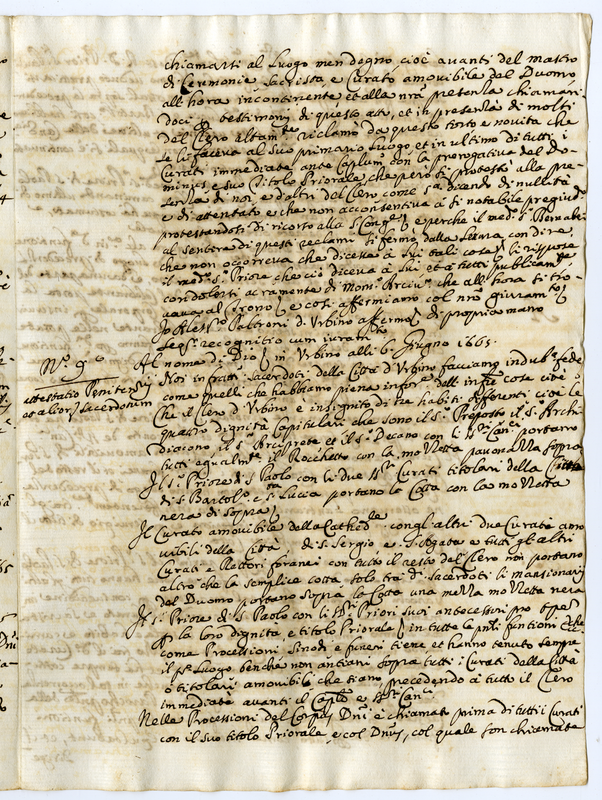 chiamarsi al Luogo men degno cioè avanti del mastro
di Cerimonie Sacrista e Curato amovibile del Duomo
all'hora incontinente et alla nrã presenza chiaman
doci p testimonij di questo atto, et in presenza di molti
del Clero altamte reclamò da questo torto e novita che
se li faceva al suo primario Luogo et in ultimo di tutti i
Curati immediate ante Caplum con la prerogativa del Do-
minus, e suo Titolo Priorale che però si protestò alla pre-
senza di noi, e d'altri del Clero come sa. dicendo di nullità
e di attentato e che non acconsentiva à sì notabile pregiudo
protestandosi di ricorso alla S. Congne e perche il medo s.
al sentire di questi reclami si fermò dalla con dire
che non occorreva che dicesse à lui tali cose li rispose
il medo s. Priore che ciò diceva à lui et à tutti publicamte
acramente di Monsr Arcivo che all'hora si tro-
vava al Trono e così affermiamo col nro giuramto
Paltroni d'Urbino affermo di propria mano
Seqr recognitio cum iuramto
Nº 9º
Al nome di Dio in Urbino alli 6 Giugno 1665.
attestatio Penitenrij
et alior sacerdotum
Noi infratti Sacerdoti della Città d'Urbino facciamo indubta fede
come quelli che habbiamo piena infore dell' infre cose cioè
Che il Clero d'Urbino è insignito di tre habiti differenti cioè le
quattro dignità Capitulari che sono il sr Preposto il sr Archi
diacono il sr Arciprete et il sr Decano con li ssri Canci portano
tutti egualmte il Rocchetto con la mozzetta pavonazza sopra
Il sr Priore di s. Paolo con li due ssri Curati titolari della Città
di s. Bartolo e sta Lucia portano la Cotta con la mozzetta
nera di sopra
Il Curato amovibile della Cathedle con gl'altri due Curati amo
vibili della Città di s. Sergio e s. Agata e tutti gl'altri
Curati e Rettori foranei con tutto il resto del Clero non portano
altro che la semplice cotta solo tra di sacerdoti li mansionarij
del Duomo portano sopra la Cotta una mezza mozzetta nera
Il sr Priore di s. Paolo con li ssri Priori suoi antecessori pro tpre
p la loro dignità e titolo Priorale in tutte le pnti funtioni Cleli
come Processioni Sinodi e funeri tiene et hanno tenuto sempre
il po Luogo benche non antiani sopra tutti i Curati della Città
ò titolari amovibili che siano precedendo à tutto il Clero
immediate avanti il Caplo e ssri Canci
Nelle Processioni del Corpus Dni è chiamato prima di tutti i Curati
con il suo titolo Priorale e col Dnus, col quale son chiamate